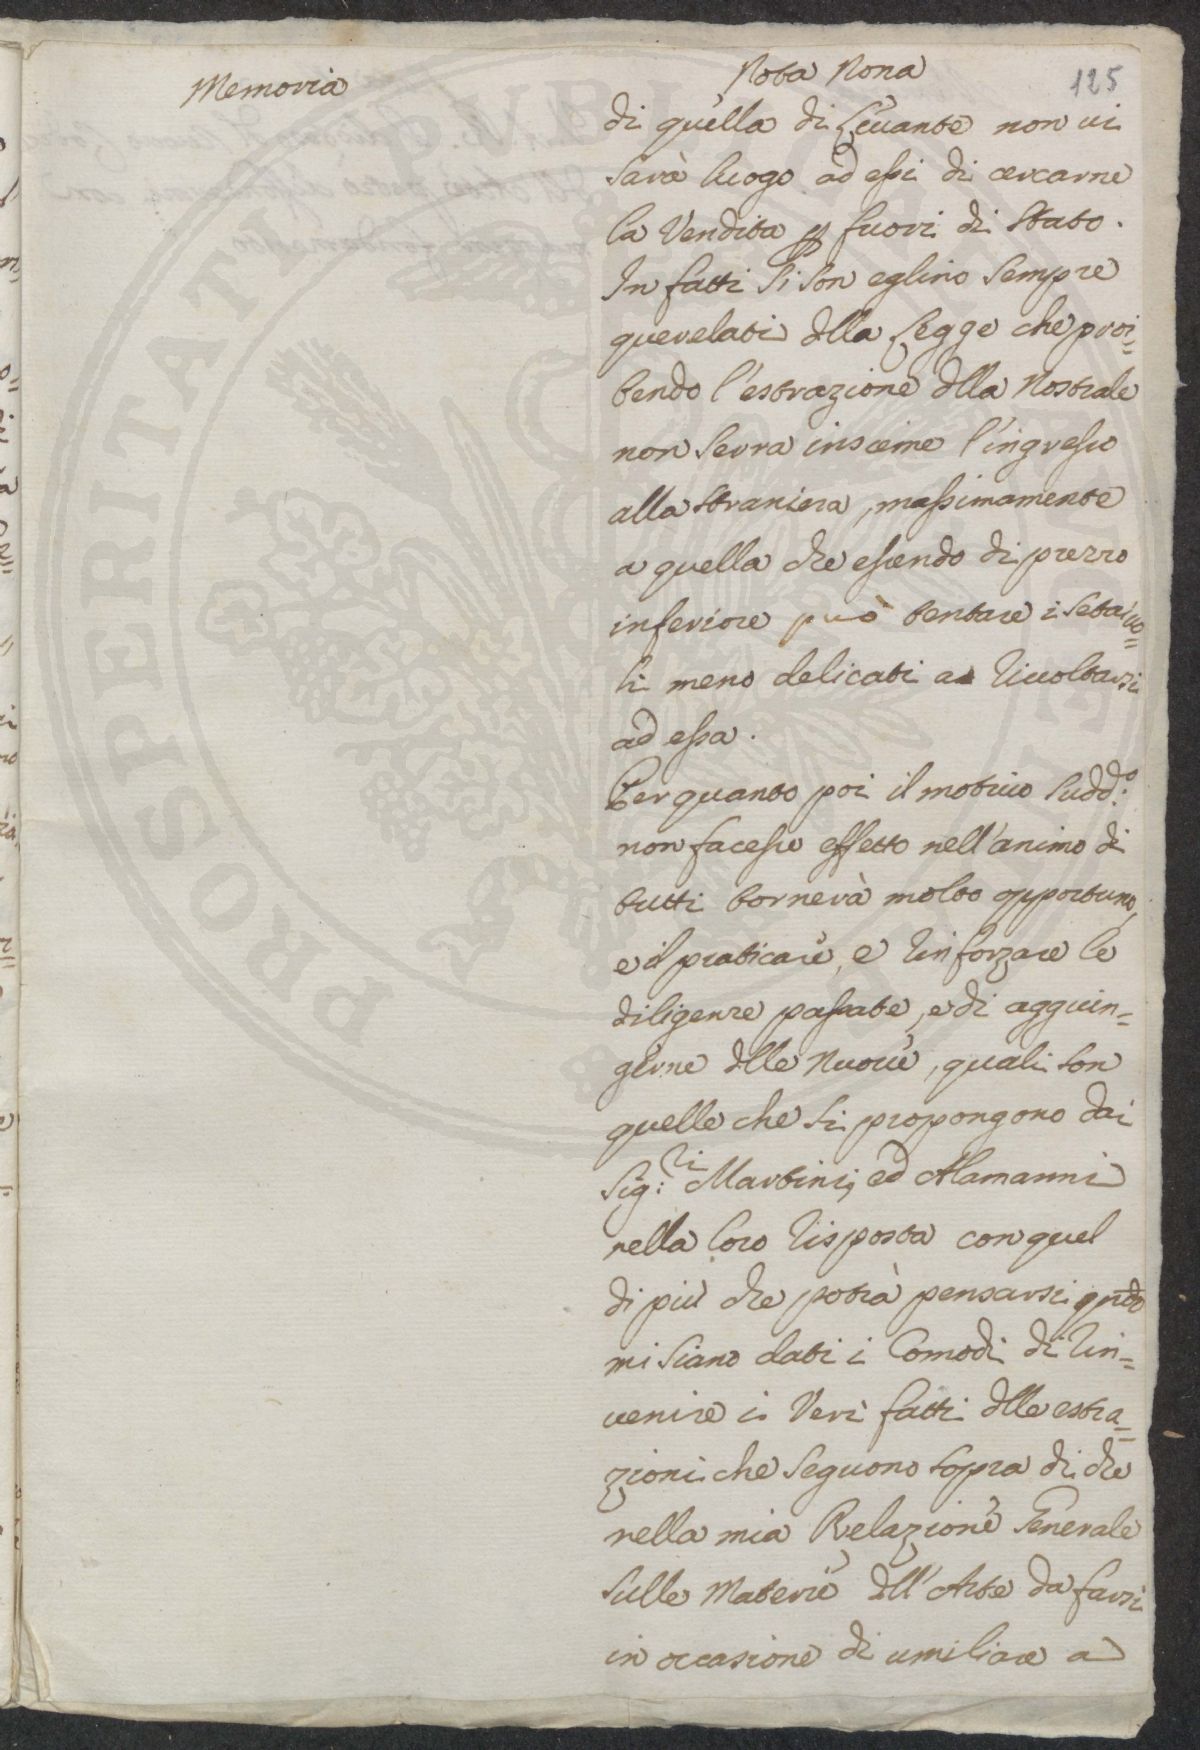 Memoria
Nota Nona
125
di quella di Levante non vi
sarà luogo ad essi di cercarne
la Vendita p fuori di Stato.
In fatti si son eglino sempre
querelati dlla Legge che proi=
bendo l'estrazione dlla Nostrale
non serra insieme l'ingresso
alla straniera, massimamente
a quella che essendo di prezzo
inferiore può tentare i Setaiuo=
li meno delicati a rivoltarsi
ad essa.
Per quanto poi il motivo sudd:o
non facesse effetto nell'animo di
tutti tornerà molto opportuno,
e il praticare, e rinforzare le
diligenze passate, e di aggiun=
gerne dlle nuove, quali son
quelle che si propongono dai
Sig:ri Martini, ed Alamanni
nella loro risposta con quel
di più che potrà pensarsi qndo
mi siano dati i Comodi di rin=
venire i veri fatti dlle estra=
zioni che seguono sopra di che
nella mia Relazione Generale
sulle Materie dll'Arte da farsi
in occasione di umiliare a
PROSPERITATI PVBLICAE